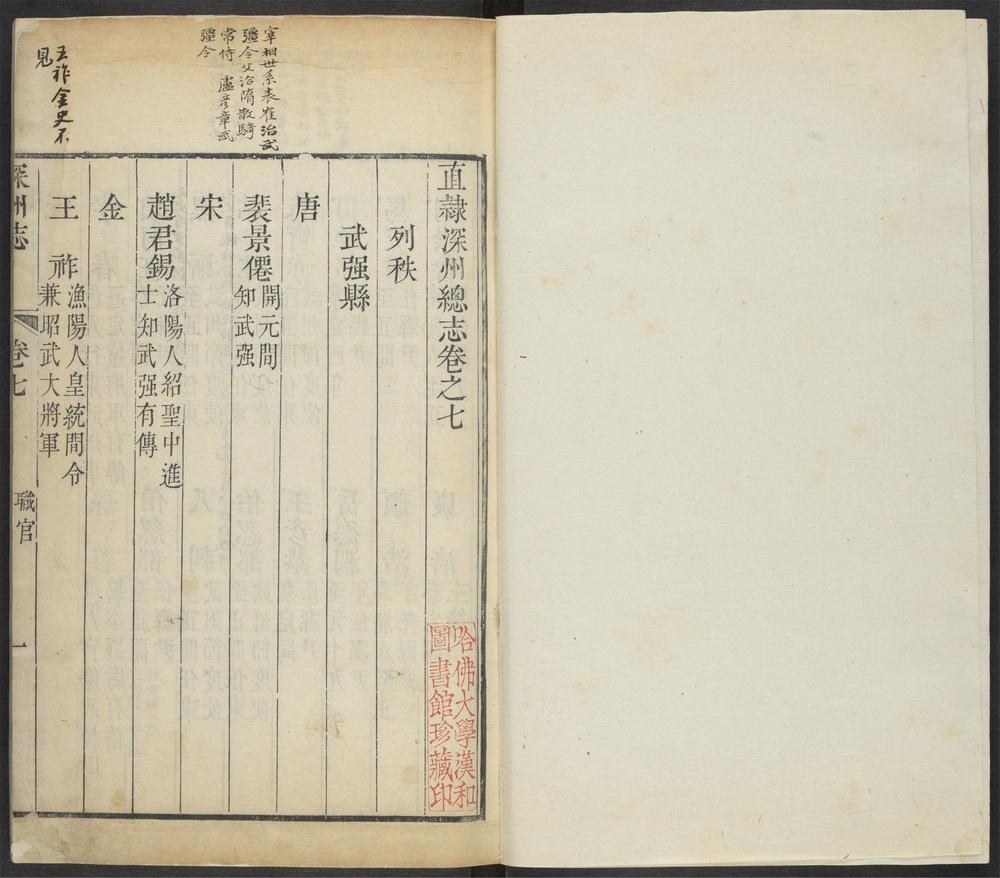 宰相世系表崔治武
彊令父治隋散騎
常侍 盧彥章武
彊令
王祚金史不
見
直隸深州總志卷之七
列秩
武强縣
唐
裴景僊開元間
知武强
宋
趙君錫洛陽人紹聖中進
士知武强有傳
金
王 祚漁陽人皇統間令
兼昭武大將軍
深州志 卷七 職官 一
哈佛大學漢和
圖書館珍藏印